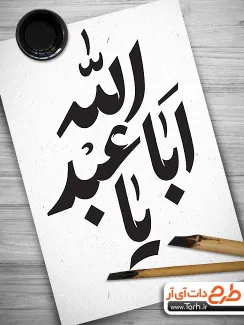 یا اَبا عَبْدِ اللّٰه
طرح دات آی آر
www.Tarh.ir